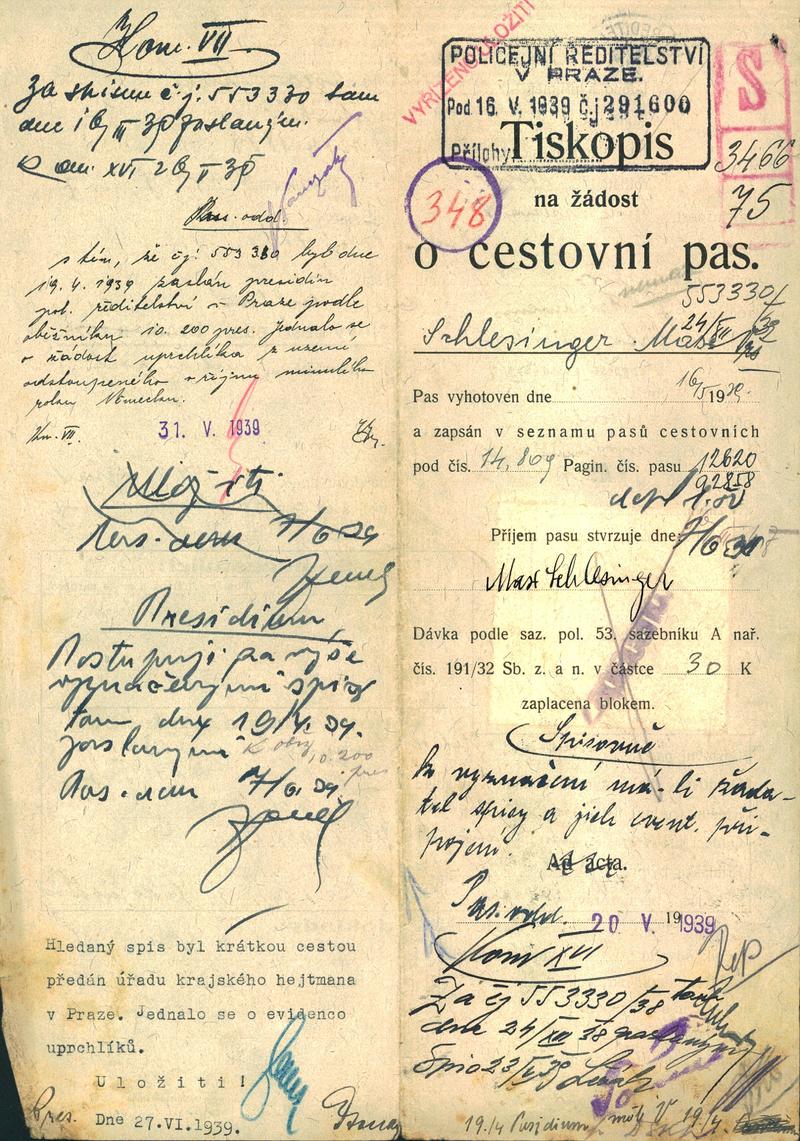 Kom. VII
Za spisem č.j. 553330 tam
dne
Kom. XVI
Pas. odd.
s tím, že čj: 553 330 byl dne
19. 4. 1939 zaslán presidiu
pol. ředitelství v Praze podle
oběžníku 10.200 pres. Jednalo se
o žádost uprchlíka z území
odstoupeného v říjnu minulého
roku Německu.
Km. VII.
31. V. 1939
Uložiti
7/6 39
Presidium
Postupuji za výše
vyznačenými spisy
tam dne 19/4. 39.
zaslanými
10.200
pres
Pas. 7/6. 39
Hledaný spis byl krátkou cestou
předán úřadu krajského hejtmana
v Praze. Jednalo se o evidenco
uprchlíků.
Uložiti!
Pres. Dne 27.VI.1939.
VYŘÍZENO ULOŽITI
POLICEJNÍ ŘEDITELSTVÍ
V PRAZE.
Pod. 16. V. 1939 č.j. 291600
Přílohy
S
3466
75
348
Tiskopis
na žádost
o cestovní pas.
553330/
24/XII 38
Schlesinger Max
Pas vyhotoven dne 16/5 1939.
a zapsán v seznamu pasů cestovních
pod čís. 14,809 Pagin. čís. pasu 12620
92858
Příjem pasu stvrzuje dne: 7/6 39
Max Schlesinger
Dávka podle saz. pol. 53. sazebníku A nař.
čís. 191/32 Sb. z. a n. v částce 30 K
zaplacena blokem.
Spisovně
k vyznačení má-li žada-
tel spisy a jich event. při-
pojení.
Ad acta.
Pas. odd. 20 V. 1939
Kom XVI
Za čj 553330/38 tam
dne 24/XII 38 zaslaným
19./4 Presidium